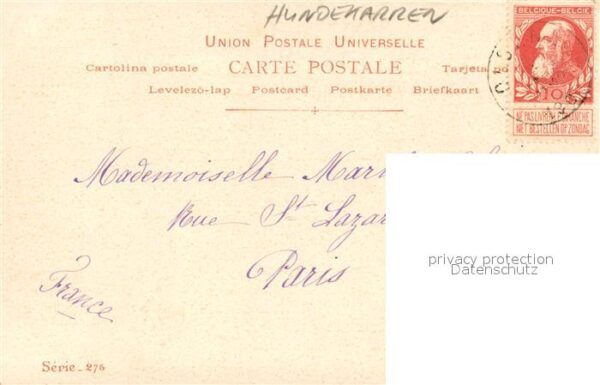 HUNDEKARREN
UNION POSTALE UNIVERSELLE
Cartolina postale CARTE POSTALE Tarjeta
Levelező-lap Postcard Postkarte Briefkaart
BELGIQUE-BELGIË
10
NE PAS LIVRER DIMANCHE
NIET BESTELLEN OP ZONDAG
Mademoiselle
Rue St Lazar
Paris
France
privacy protection
Datenschutz
Série _ 275